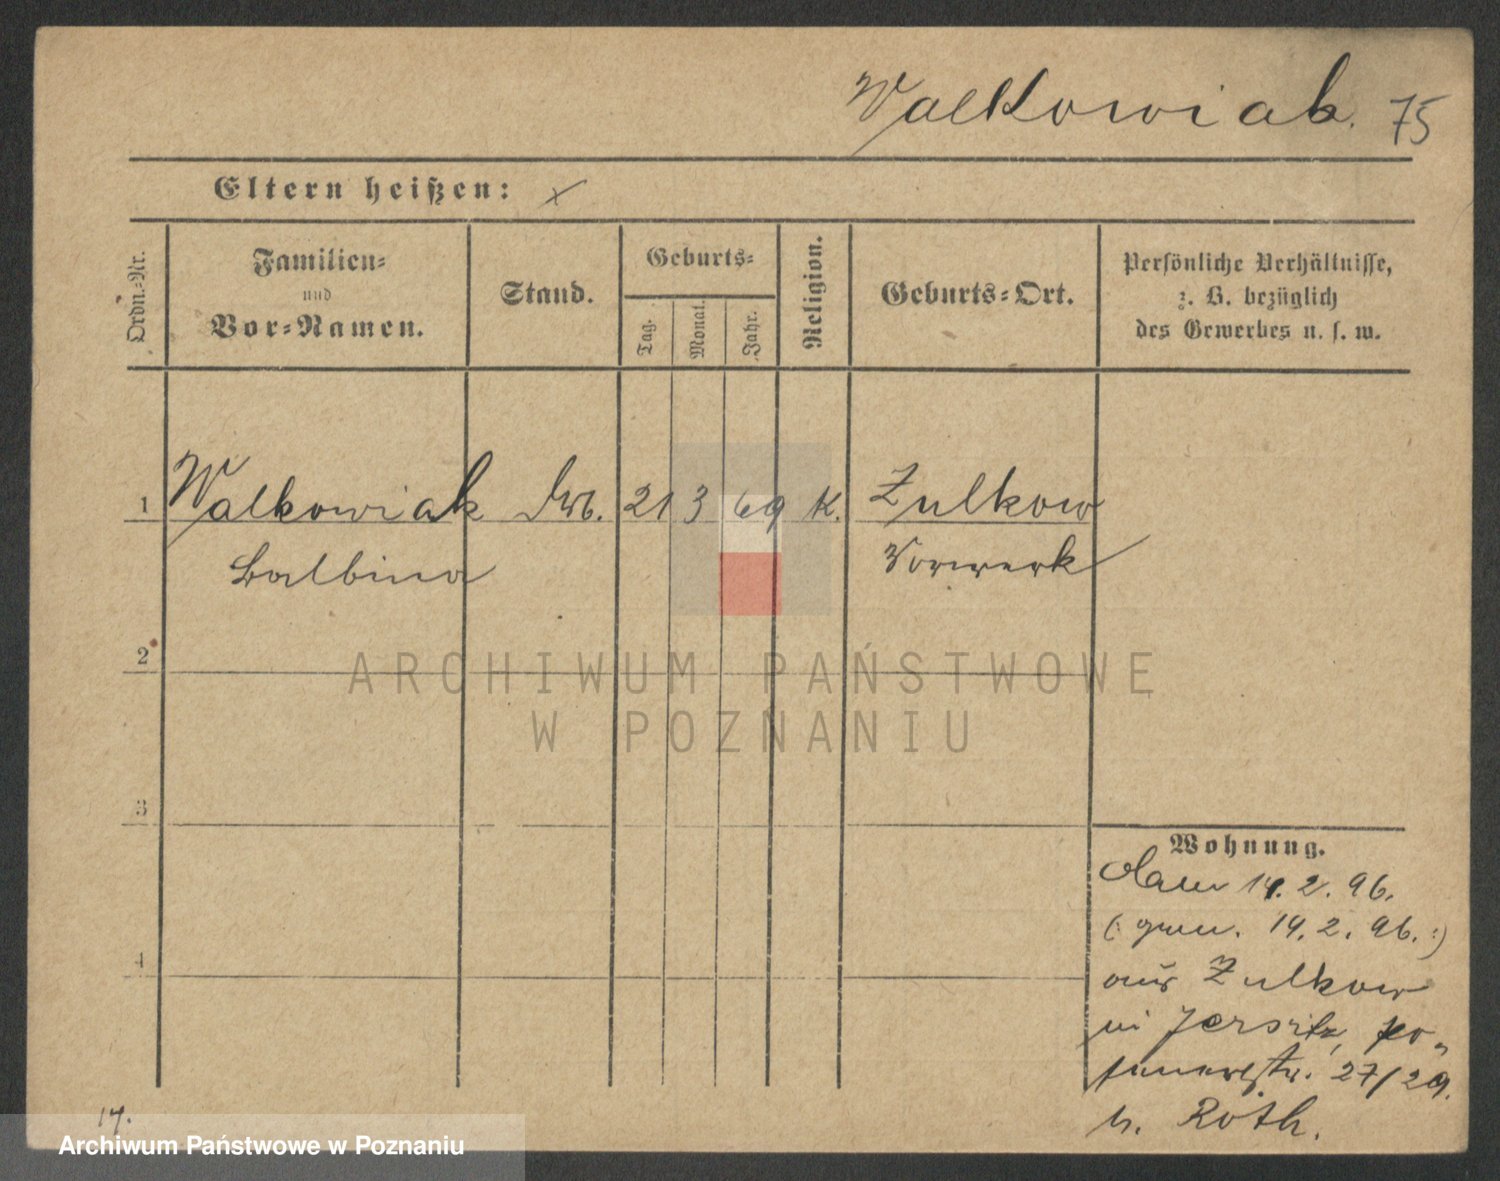 Walkowiak. 75
Eltern heißen: x
Ordn.-Nr.
Familien-
und
Vor-Namen.
Stand.
Geburts-
Tag.
Monat.
Jahr.
Religion.
Geburts-Ort.
Persönliche Verhältnisse,
z. B. bezüglich
des Gewerbes u. s. w.
1 Walkowiak 21 3 69 K. Zulkow
Balbina Vorwerk
2
3
4
Wohnung.
14. 2. 96.
(: gem. 14. 2. 96. :)
aus Zulkow
in Jersitz, Po-
senerstr. 27/29.
b. Roth.
14.
ARCHIWUM PAŃSTWOWE
W POZNANIU
Archiwum Państwowe w Poznaniu